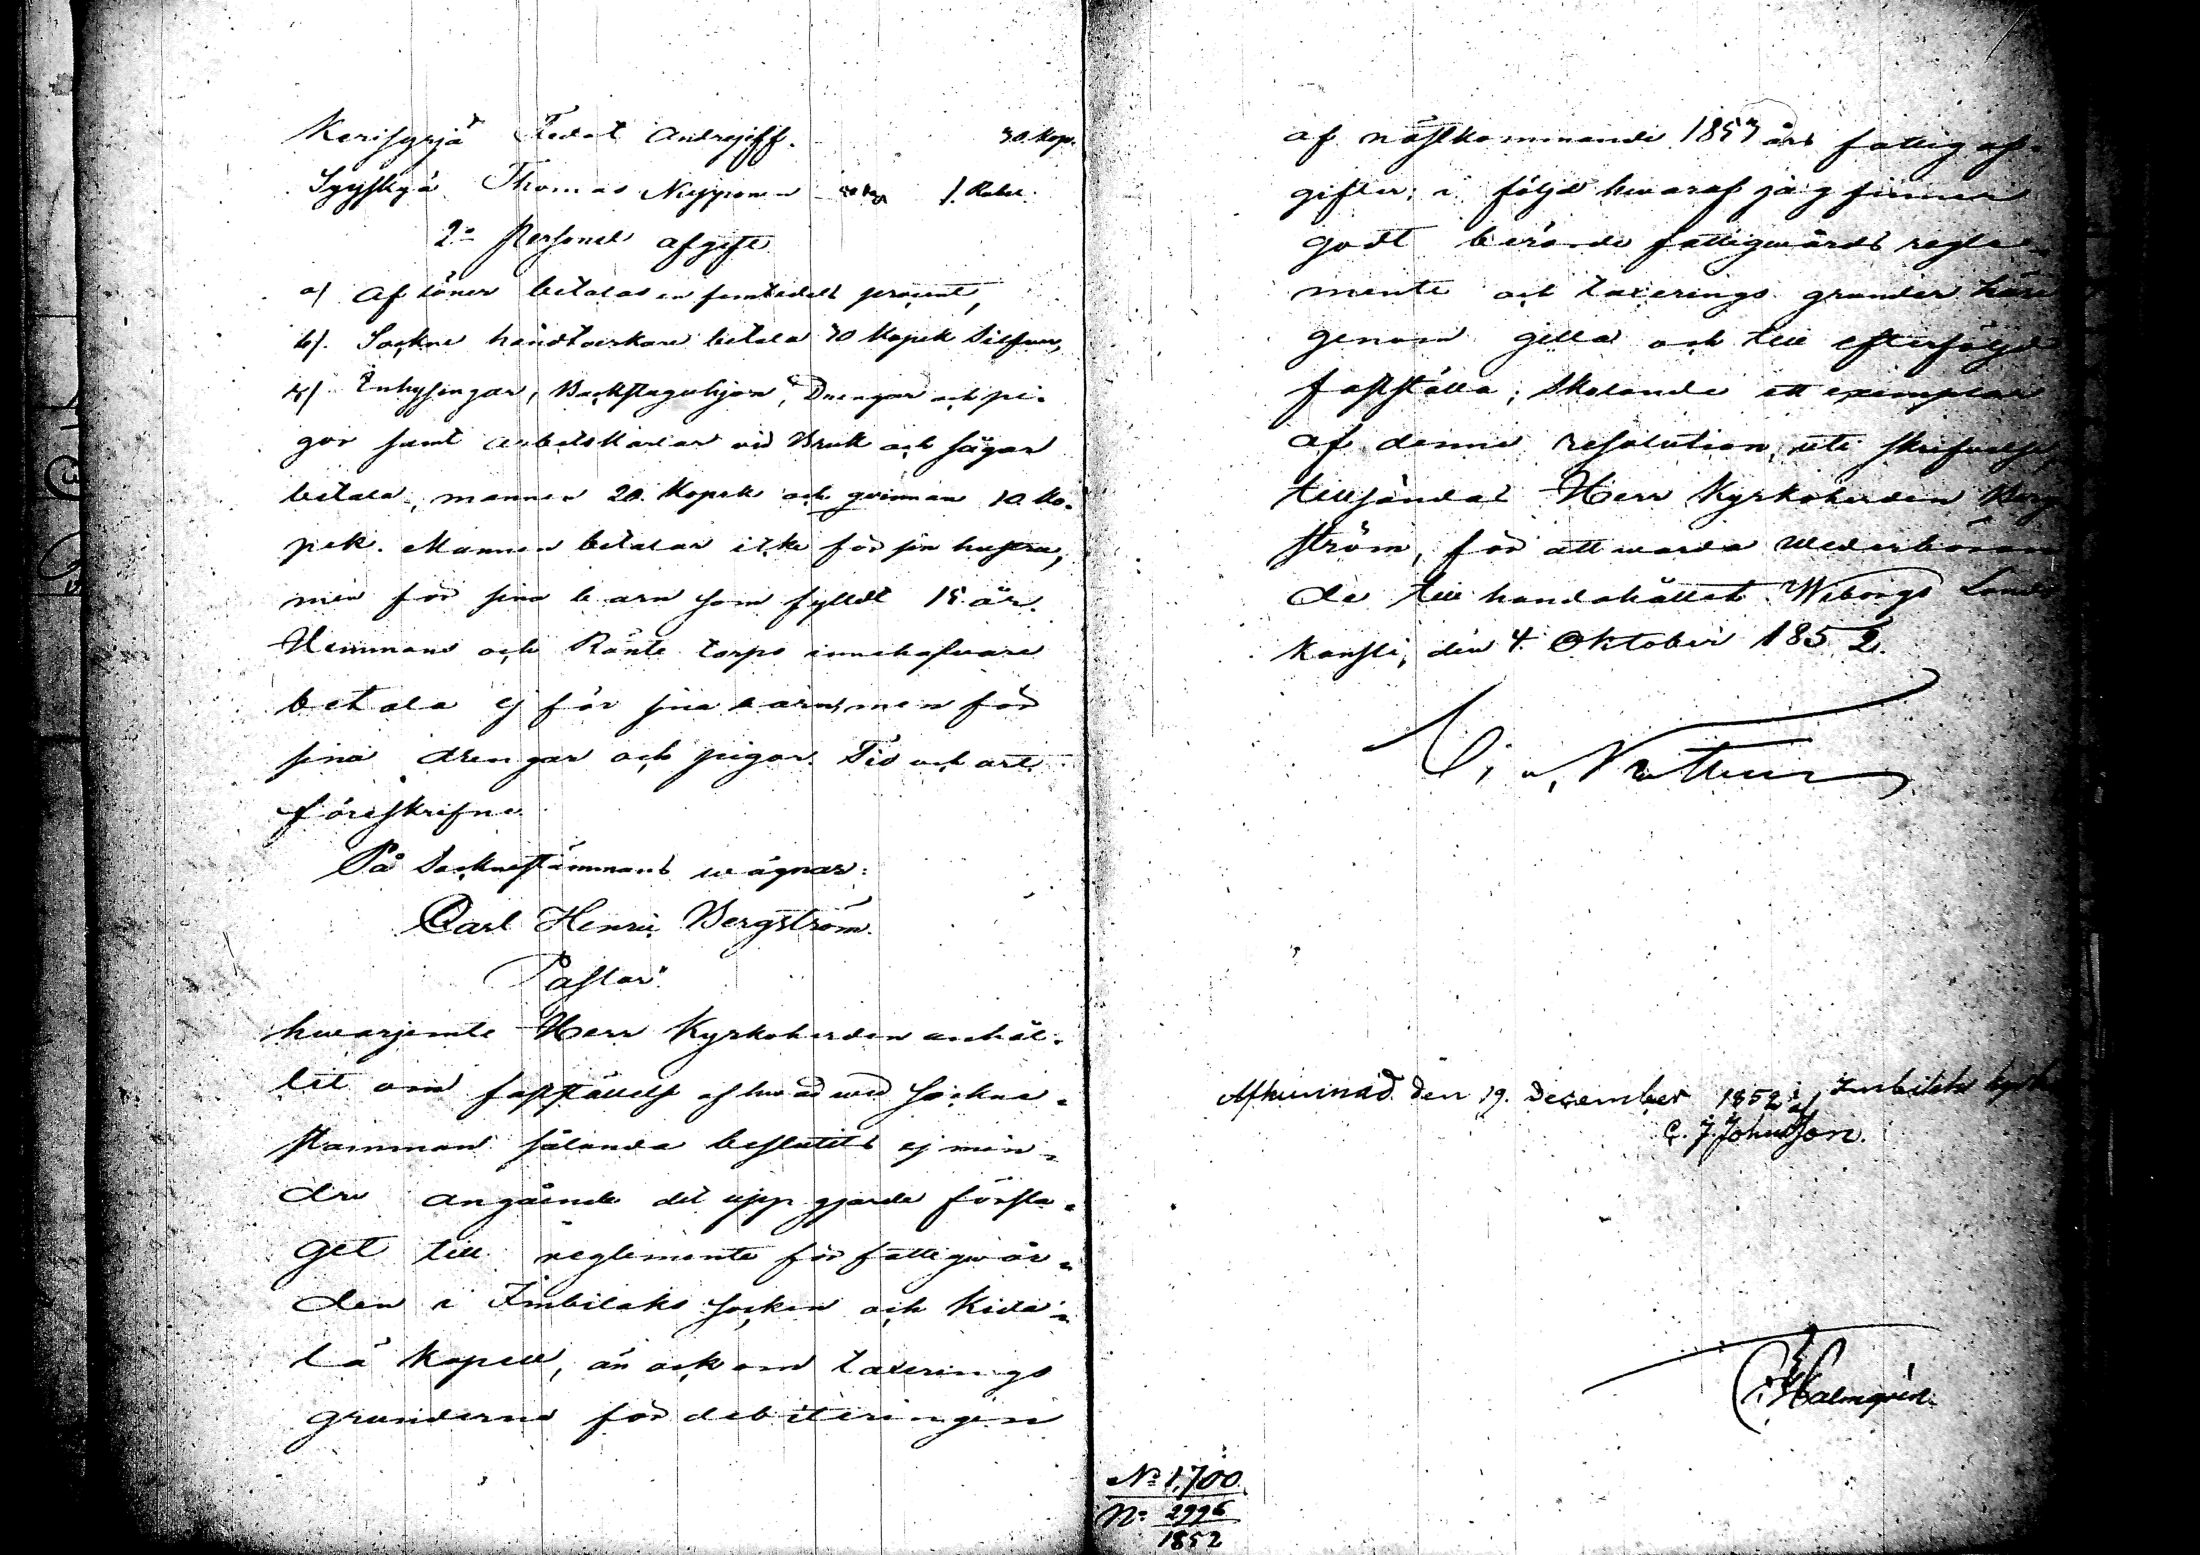 Kerisyrjä Fedot Andrejeff. 30. Kop.
Syyskyä Thomas Nupponen 1. Rubel.
2o Personel afgift
a) Af löner betalas en femtedels procent,
b). Sockne händtverkare betala 30 Kopek Silfver,
c) Inhysingar, Backstuguhjon, Drengar och pi-
gor samt arbetskarlar vid Bruk och sågar
betala, mannen 20. Kopek och qvinnan 10. Ko-
pek. Mannen betalar icke för sin hustru,
men för sina barn som fyllt 15 år.
Hemmans och Ränte torps innehafvare
betala ej för sina barn, men för
sina drengar och pigor. Tid och ort
föreskrifne.
På Socknestämmans wägnar:
Carl Henric Bergström.
Pastor"
hwarjemte Herr Kyrkoherden anhål-
lit om fastställelse af hwad wid Sockne-
stämman sålunda beslutits ej min-
dre angående det uppgjorde försla-
get till reglemente för fattigwår-
den i Imbilaks Socken och Kide-
lä Kapell, än ock om taxerings
grunderne för debiteringen
af nästkommande 1853 års fattigaf-
gifter; i följd hwaraf jag finner
godt berörde fattigwårds regle-
mente och taxerings grunder häri-
genom gilla och till efterföljd
fastställa; skolande ett exemplar
af denna resolution, uti skrifvelse,
tillsändas Herr Kyrkoherden Berg
ström, för att warda wederböran
de till handahållet. Wiborgs Lands
Kansli, den 4. Oktober 1852.
Afkunnad den 19. December 1852 i Imbilaks kyrka
af C. J. Johnsson.
Malmqvist.
No 1,700.
No 2996
1852